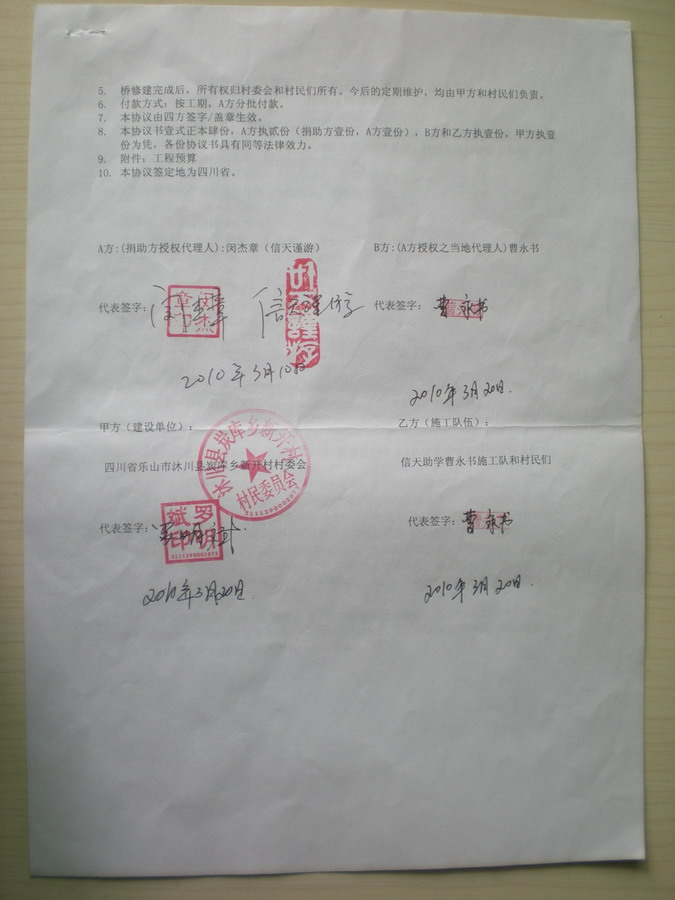 5. 桥修建完成后，所有权归村委会和村民们所有。今后的定期维护，均由甲方和村民们负责。
6. 付款方式：按工期，A方分批付款。
7. 本协议由四方签字/盖章生效。
8. 本协议书壹式正本肆份，A方执贰份（捐助方壹份，A方壹份），B方和乙方执壹份，甲方执壹
份为凭，各份协议书具有同等法律效力。
9. 附件：工程预算
10. 本协议签定地为四川省。
A方:(捐助方授权代理人):闵杰章（信天谨游）
B方:(A方授权之当地代理人)曹永书
代表签字：闵杰章 信天谨游
代表签字：曹永书
2010年3月10日
2010年3月20日.
甲方（建设单位）：
乙方（施工队伍）：
四川省乐山市沐川县炭库乡新开村村委会
信天助学曹永书施工队和村民们
沐川县炭库乡新开村
村民委员会
代表签字：罗明斌
代表签字：曹永书
斌罗
印明
2010年3月20日.
2010年3月20日.